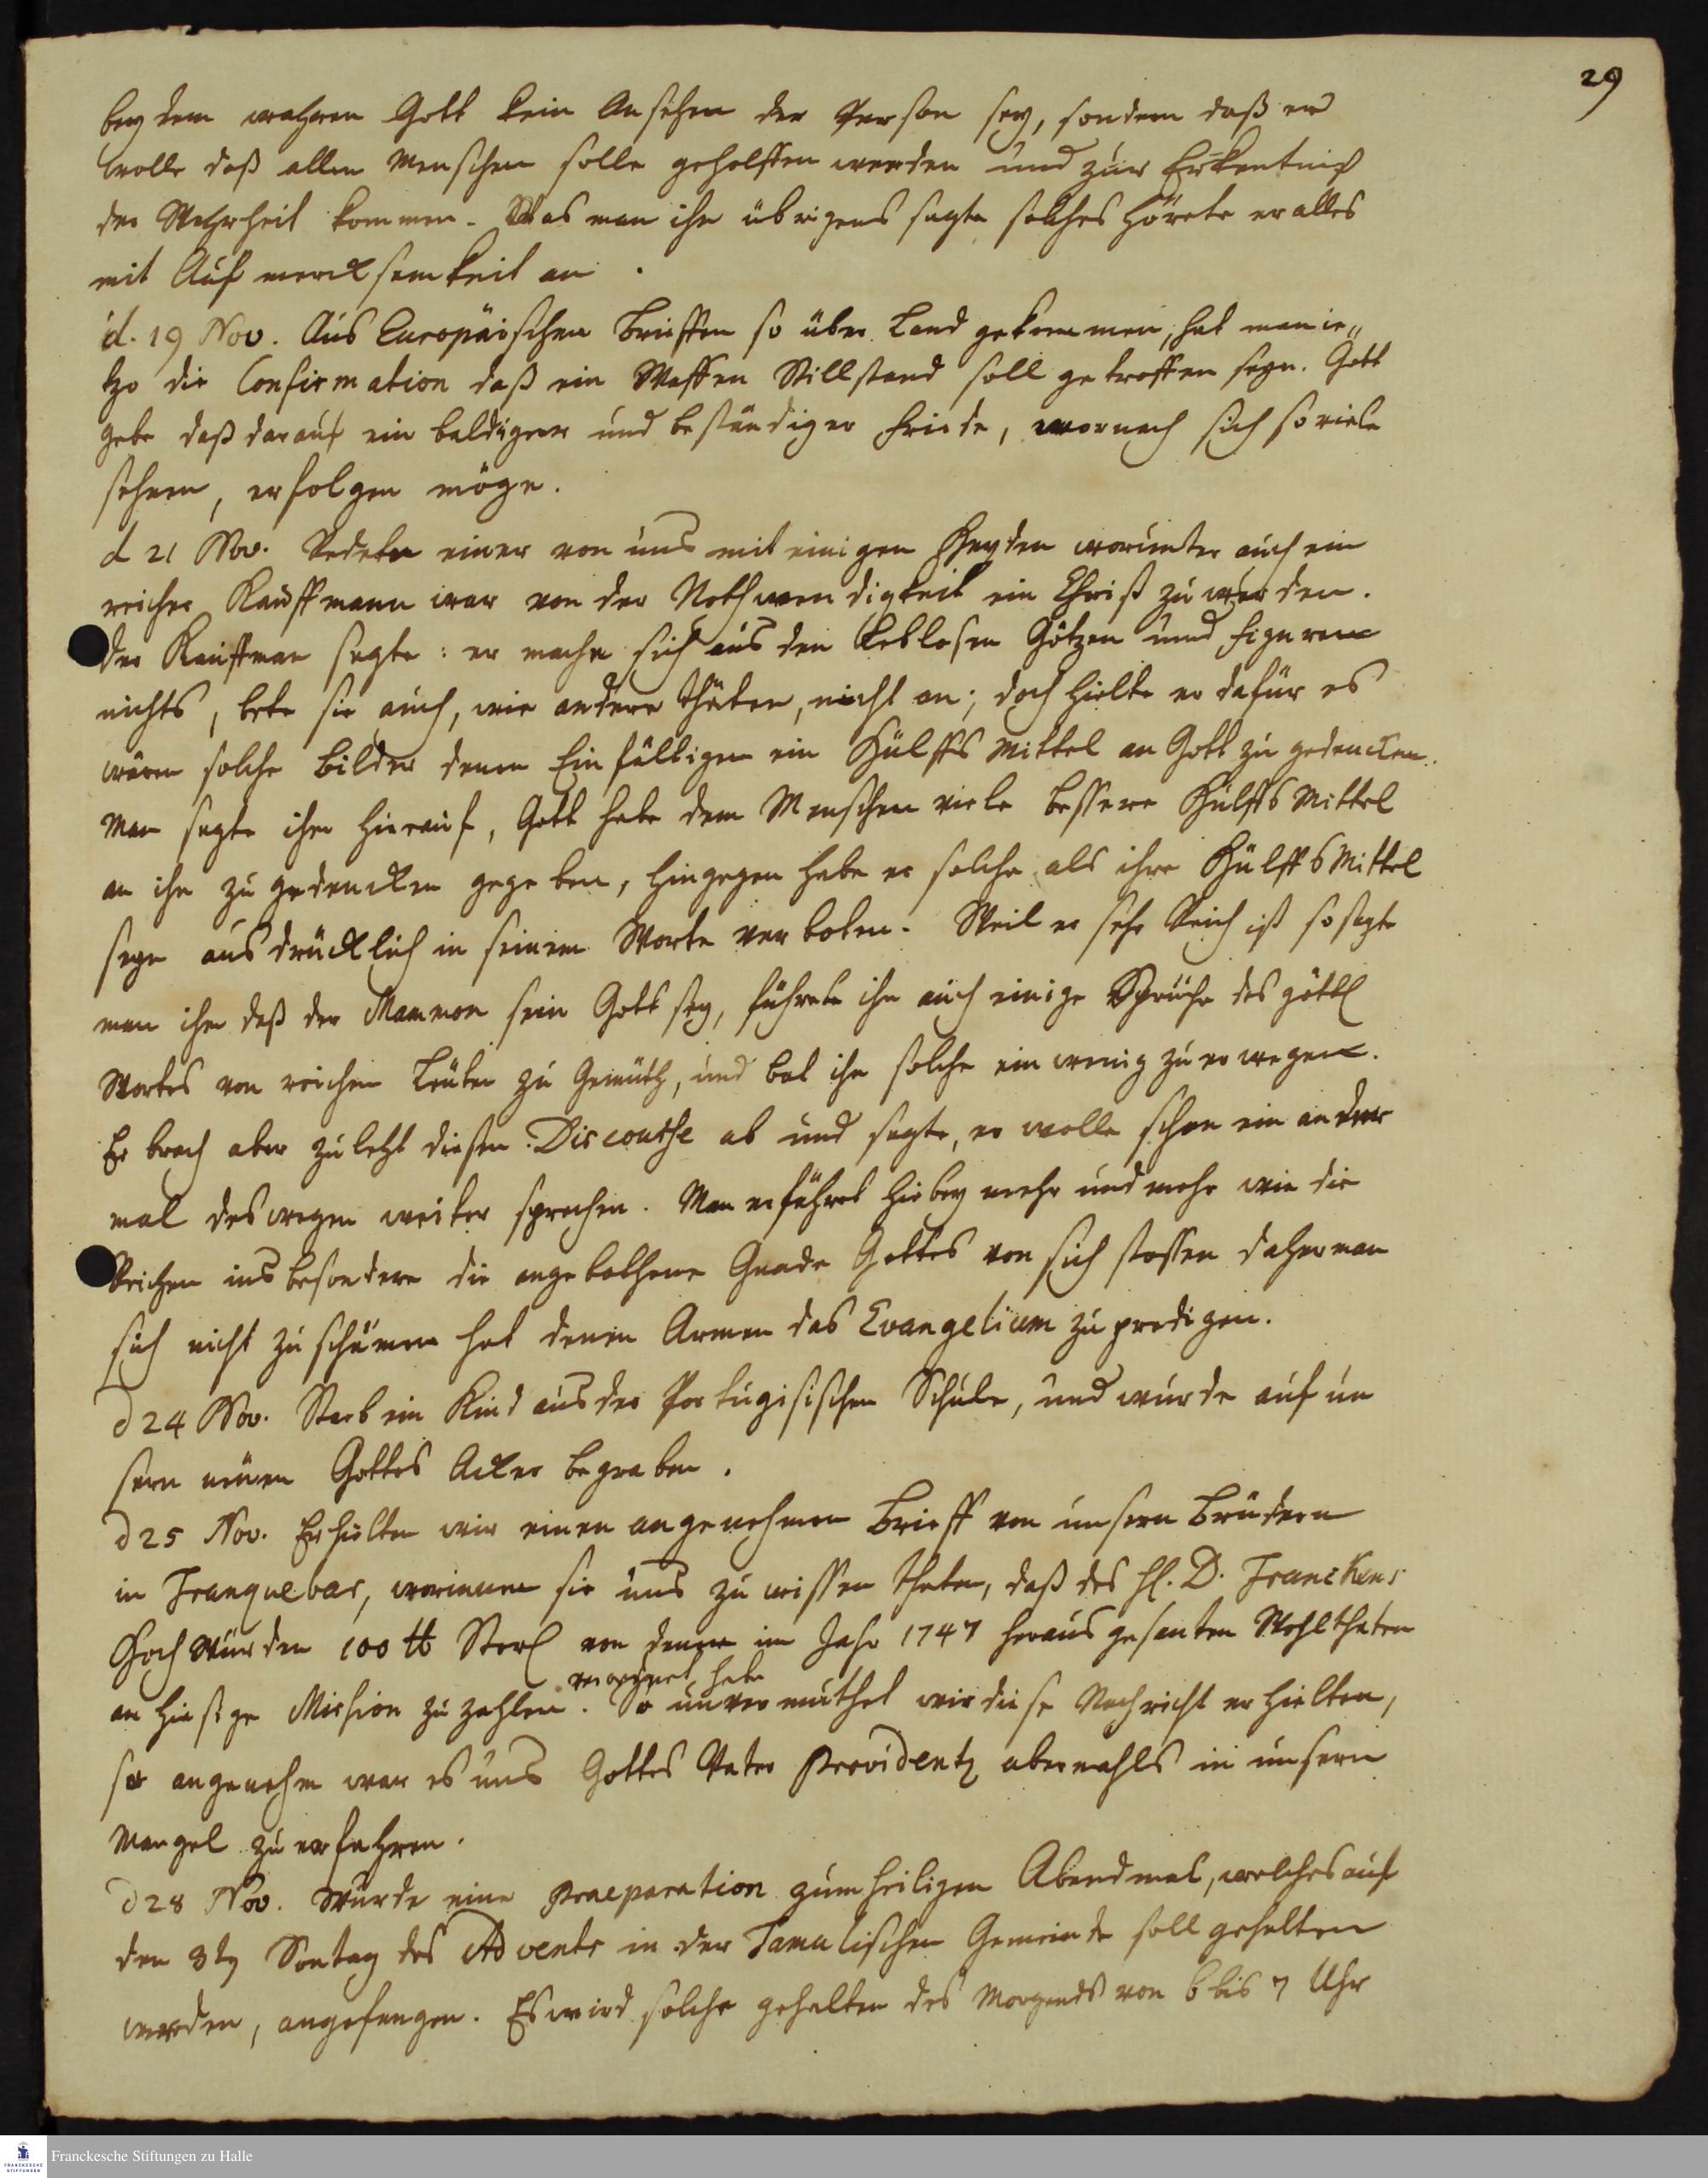 29
bey dem wahren Gott kein Ansehen der Person sey, sondern daß er
wolle daß allen Menschen solle geholffen werden und zur Erkentniß
der Wahrheit kommen. Was man ihm übrigens sagte solches hörete er alles
mit Aufmercksamkeit an.
d. 19 Nov. Aus Europäischen Brieffen so über Land gekommen, hat man ie„
tzo die Confirmation daß ein Waffen Stillstand soll getroffen seyn. Gott
gebe daß darauf ein baldiger und beständiger Friede, wornach sich so viele
sehnen, erfolgen möge.
d 21 Nov. Redete einer von uns mit einigen Heyden worunter auch ein
reicher Kauffmann war von der Nothwendigkeit ein Christ zu werden.
Der Kauffman sagte: er mache sich aus den leblosen Götzen und Figuren
nichts, bete sie auch, wie andere thäten, nicht an; doch hielte er dafür es
wären solche Bilder denen Einfältigen ein Hülffs Mittel an Gott zu gedencken.
Man sagte ihm hierauf, Gott habe dem Menschen viele bessere Hülffs Mittel
an ihn zu gedencken gegeben, hingegen habe er solche als ihre Hülffs Mittel
seyn ausdrücklich in seinem Worte verboten. Weil er sehr Reich ist so sagte
man ihm daß der Mammon sein Gott sey, führete ihm auch einige Sprüche des göttl
Wortes von reichen Leuten zu Gemüth, und bat ihn solche ein wenig zu erwegen.
Er brach aber zuletzt diesen Discourse ab und sagte, er wolle schon ein ander
mal deswegen weiter sprechen. Man erfähret hiebey mehr und mehr wie die
Reichen insbesondere die angebothene Gnade Gottes von sich stossen daher man
sich nicht zu schämen hat denen Armen das Evangelium zu predigen.
d 24 Nov. Starb ein Kind aus der Portugisischen Schule, und wurde auf un
sern neuen Gottes Acker begraben.
d 25 Nov. Erhielten wir einen angenehmen Brieff von unsern Brüdern
in Tranquebar, worinnen sie uns zu wissen thaten, daß des H. D. Franckens
Hoch Würden 100 tt Sterl von denen im Jahr 1747 heraus gesanten Wohlthaten
verordnet habe
an hiesige Mission zu zahlen. So unvermuthet wir diese Nachricht erhielten,
so angenehm war es uns Gottes Vater Providentz abermahls in unserm
Mangel zu erfahren.
d 28 Nov. Wurde eine Praeparation zum heiligen Abendmal, welches auf
den 3t Sontag des Advents in der Tamulischen Gemeinde soll gehalten
werden, angefangen. Es wird solche gehalten des Morgends von 6 bis 7 Uhr
Franckesche Stiftungen zu Halle